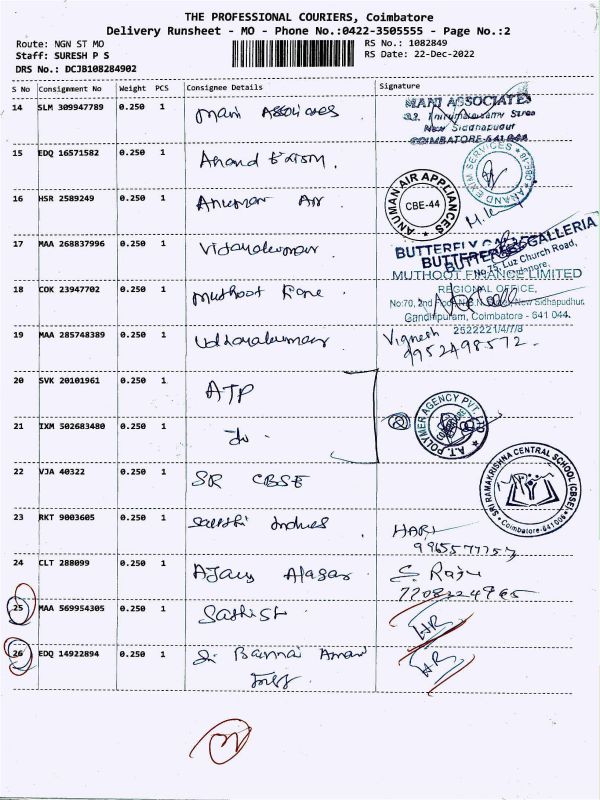 THE PROFESSIONAL COURIERS, Coimbatore
Delivery Runsheet - MO - Phone No.:0422-3505555 - Page No.:2
Route: NGN ST MO
RS No.: 1082849
Staff: SURESH P S
RS Date: 22-Dec-2022
DRS No.: DCJB108284902
S No Consignment No Weight PCS Consignee Details Signature
14 SLM 309947789 0.250 1 Mani Associates
MANI ASSOCIATES
New Siddhapudur
COIMBATORE-641 048
15 EDQ 16571582 0.250 1 Anand Exim
ANAND EXIM SERVICES CBE-18
16 HSR 2589249 0.250 1 Anuman Air
ANUMAN AIR APPLIANCES CBE-44
17 MAA 268837996 0.250 1 Vijayakumar
BUTTERFLY GALLERIA
No.15, Luz Church Road,
MUTHOOT FINANCE LIMITED
REGIONAL OFFICE,
18 COK 23947702 0.250 1 Muthoot Fine
No:70, 2nd New Sidhapudhur,
Gandhipuram, Coimbatore - 641 044.
2522221/4/7/8
19 MAA 285748389 0.250 1 Udhayakumar
Vignesh
9952498572.
20 SVK 20101961 0.250 1 ATP
21 IXM 502683480 0.250 1 do.
A.T. POLYMER AGENCY PVT. LTD COIMBATORE
22 VJA 40322 0.250 1 SR CBSE
SRI RAMAKRISHNA CENTRAL SCHOOL (CBSE)
Coimbatore-641006
23 RKT 9003605 0.250 1
HARI
24 CLT 288099 0.250 1 Ajay Alagar
S. Raju
7708224765
25 MAA 569954305 0.250 1 Sathish
HR
26 EDQ 14922894 0.250 1 Sri Bannari Amman
HR